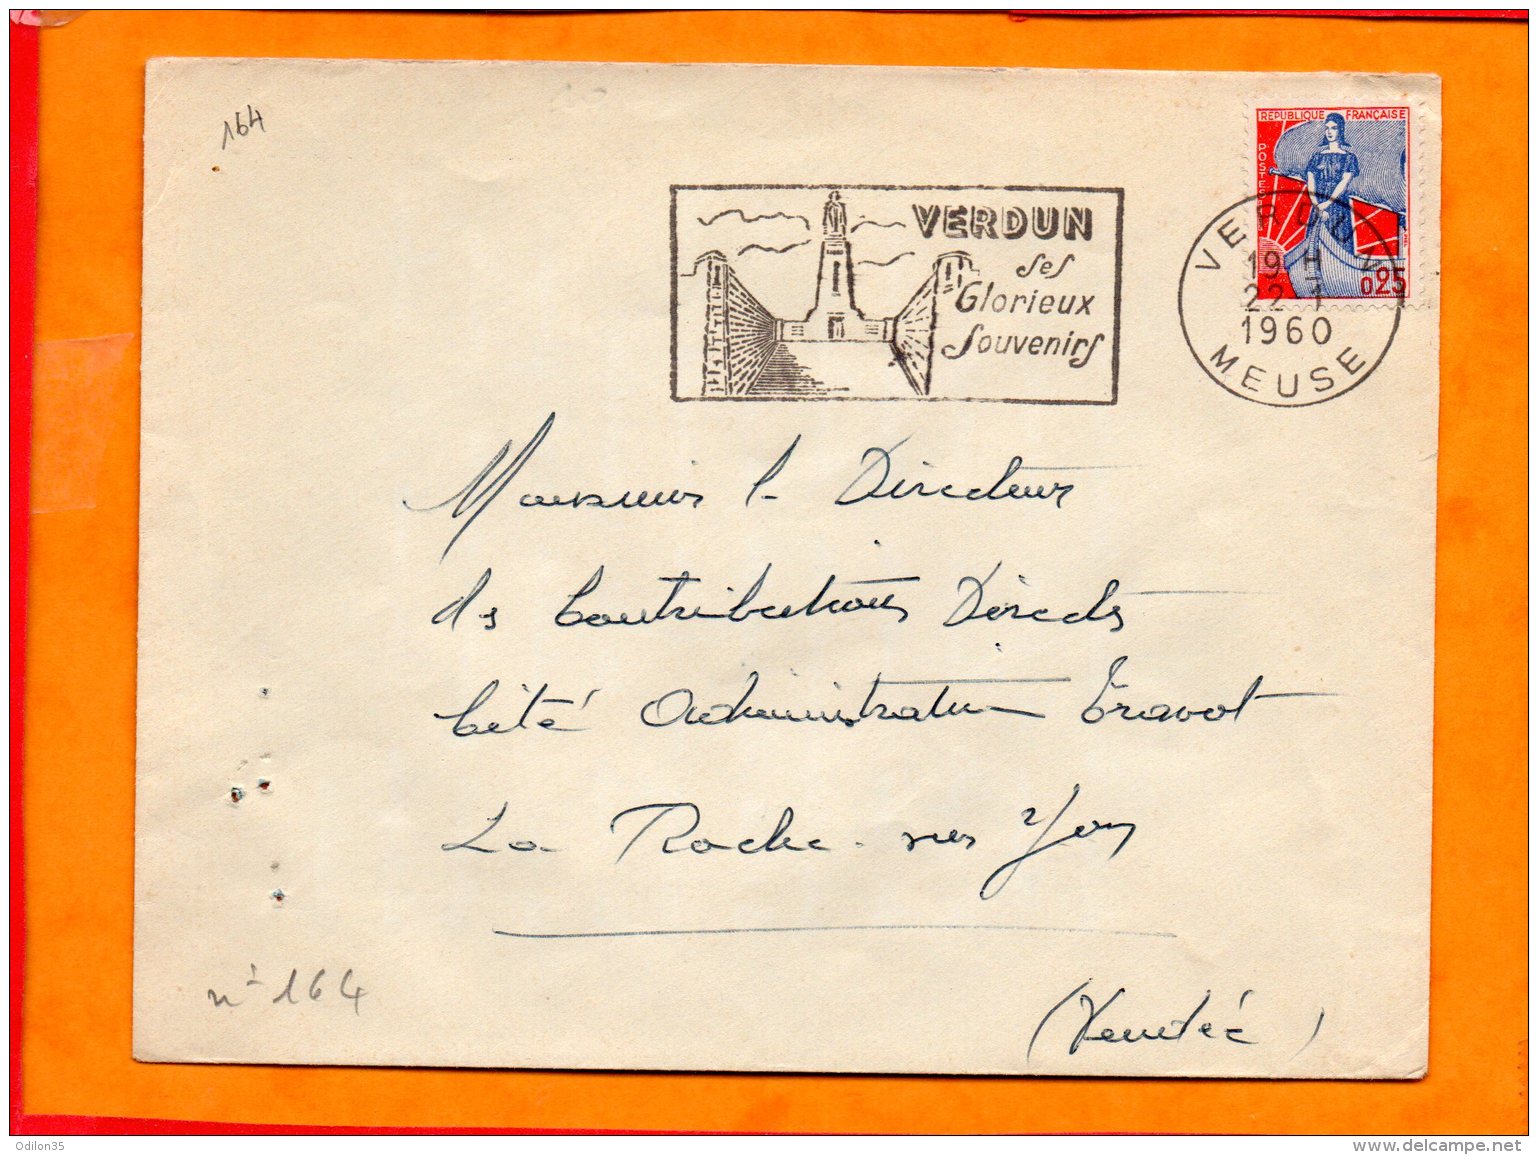 164
REPUBLIQUE FRANÇAISE
POSTES
0,25
VERDUN
ses
Glorieux
Souvenirs
VERDUN
19 H
22-1
1960
MEUSE
Monsieur le Directeur
des Contributions Directes
Cité Administrative Travot
La Roche-sur Yon
(Vendée)
n° 164
Odilon35
www.delcampe.net